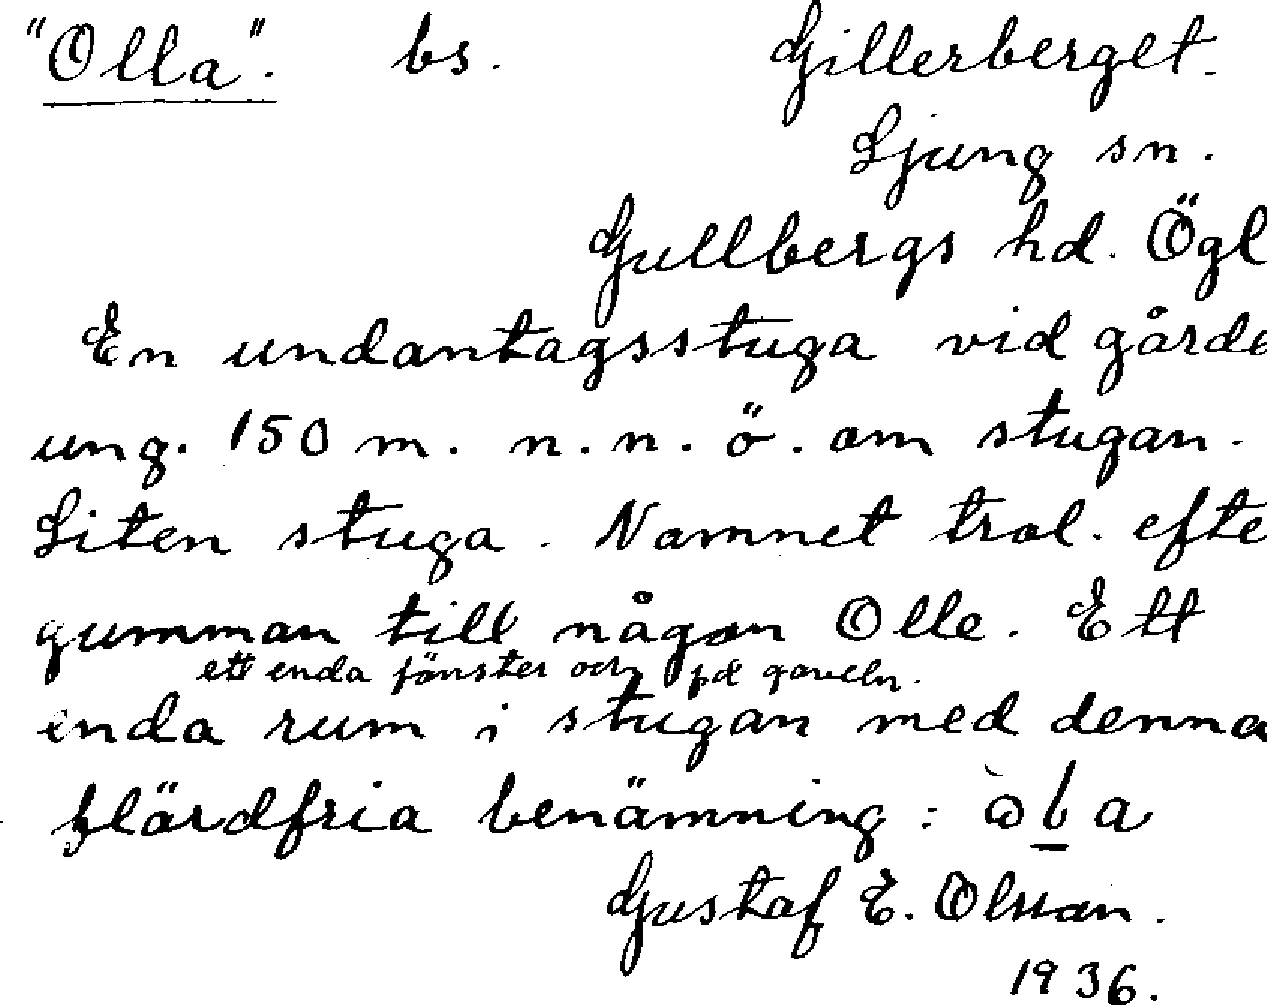 "Olla". bs. Gillerberget.
Ljung sn.
Gullbergs hd. Ögl
En undantagsstuga vid gårde
ung. 150 m. n.n.ö. om stugan.
Liten stuga. Namnet trol. efte
gumman till någon Olle. Ett
ett enda fönster och på gaveln.
enda rum i stugan med denna
flärdfria benämning:
Gustaf E. Olsson.
1936.